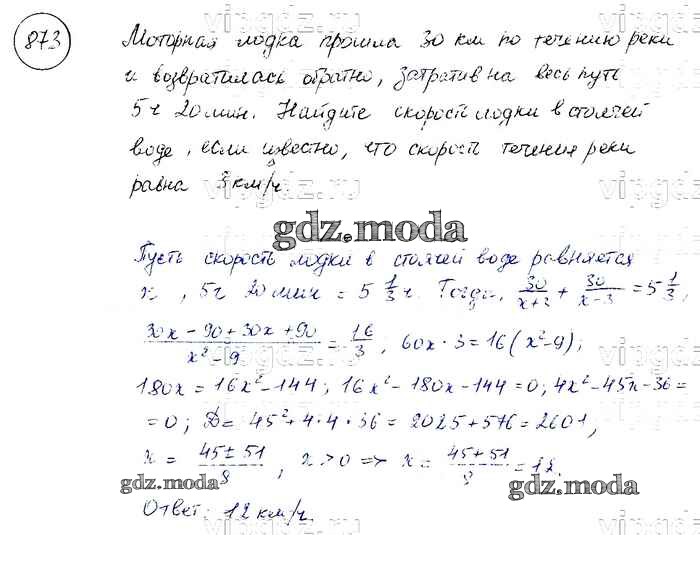 873
Моторная лодка прошла 30 км по течению реки
и возвратилась обратно, затратив на весь путь
5 ч 20 мин. Найдите скорость лодки в стоячей
воде, если известно, что скорость течения реки
равна 3 км/ч.
gdz.moda
Пусть скорость лодки в стоячей воде равняется
x, 5ч 20 мин = 5 1/3 ч. Тогда, 30/(x+3) + 30/(x-3) = 5 1/3,
(30x - 90 + 30x + 90)/(x² - 9) = 16/3, 60x · 3 = 16(x² - 9);
180x = 16x² - 144; 16x² - 180x - 144 = 0; 4x² - 45x - 36 =
= 0; D = 45² + 4 · 4 · 36 = 2025 + 576 = 2601,
x = (45 ± 51)/8, x > 0 => x = (45 + 51)/8 = 12.
gdz.moda gdz.moda
Ответ: 12 км/ч.
vipgdz.ru